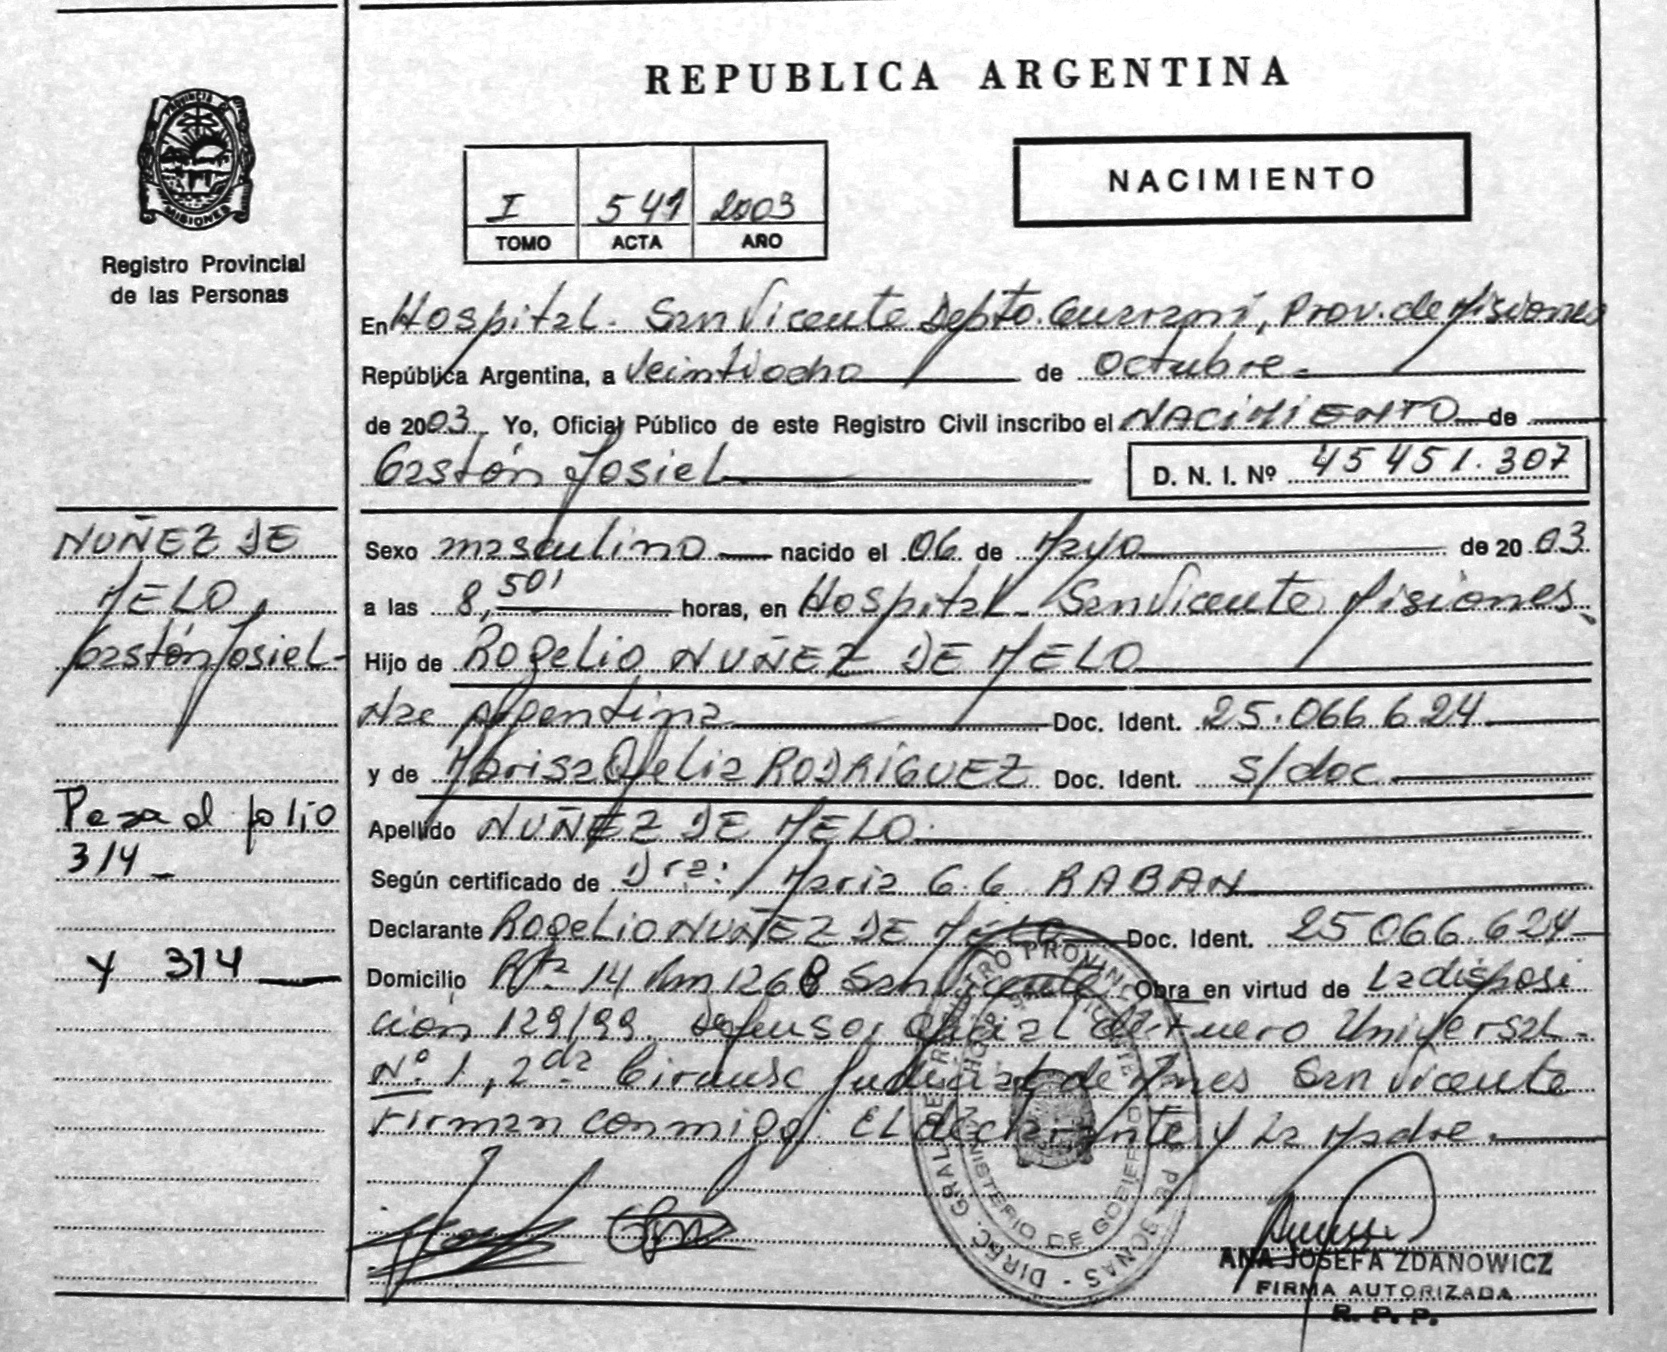 REPUBLICA ARGENTINA
PROVINCIA DE
MISIONES
Registro Provincial
de las Personas
NACIMIENTO
I 541 2003
TOMO ACTA AÑO
En Hospital - San Vicente Depto. Guaraní, Prov. de Misiones
República Argentina, a veintiocho de octubre
de 2003 Yo, Oficial Público de este Registro Civil inscribo el NACIMIENTO de
Gastón Josiel
D. N. I. Nº 45 451.307
NUÑEZ DE
MELO,
Gastón Josiel
Sexo masculino nacido el 06 de Mayo de 2003
a las 8,50' horas, en Hospital - San Vicente Misiones.
Hijo de Rogelio NUÑEZ DE MELO
Nac Argentina Doc. Ident. 25.066 624
y de Marisa Ofelia RODRIGUEZ Doc. Ident. s/doc
Apellido NUÑEZ DE MELO.
Según certificado de Dra: María G.G. RABAN
Declarante Rogelio NUÑEZ DE MELO Doc. Ident. 25 066 624
Domicilio Rta 14 Km 1268 San Vicente Obra en virtud de La disposi
ción 129/99. Defensor Oficial de Fuero Universal -
Nº 1, 2da Circunsc Judicial de Mnes San Vicente
Firman conmigo: El declarante y La Madre.
Pasa al folio
314 -
y 314
ANA JOSEFA ZDANOWICZ
FIRMA AUTORIZADA
R. P. P.